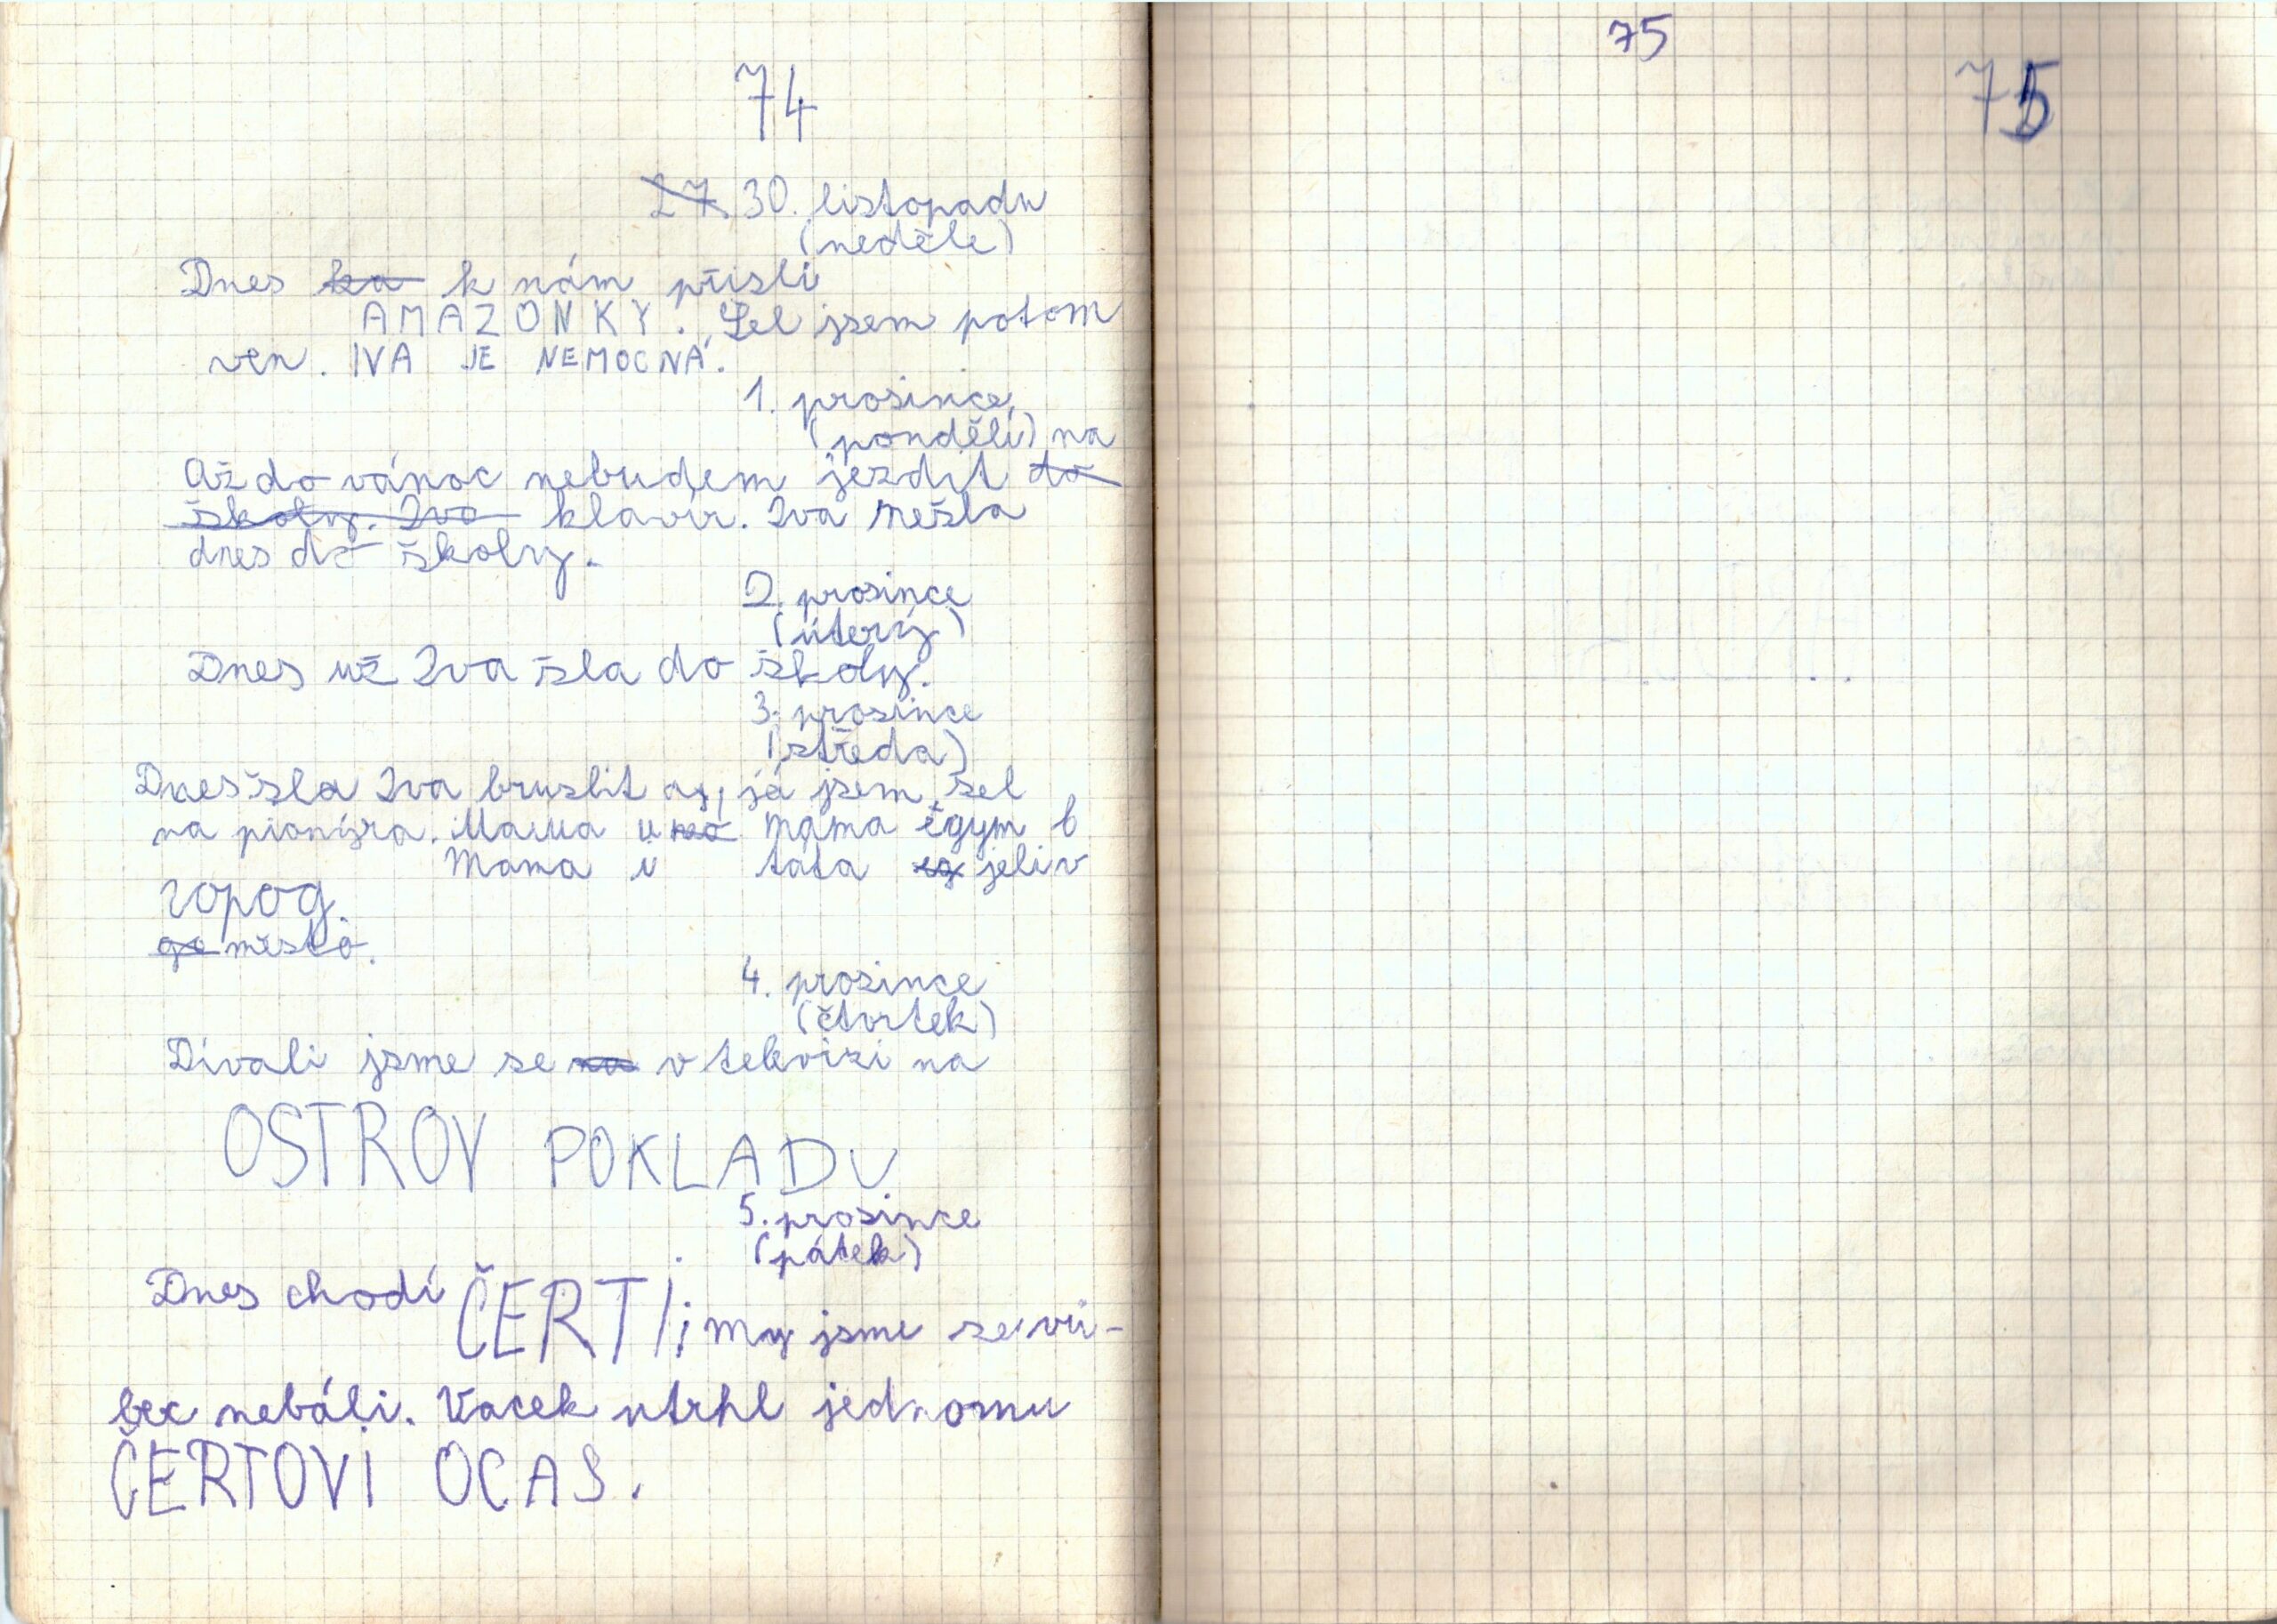 74
27. 30. listopadu
(neděle)
Dnes ka k nám přisli
AMAZONKY. Šel jsem potom
ven. IVA JE NEMOCNÁ.
1. prosince
(pondělí) na
Až do vánoc nebudem jezdit do
školy. Iva klavír. Iva nešla
dnes do školy.
2. prosince
(úterý)
Dnes už Iva šla do školy.
3. prosince
(středa)
Dnes šla Iva bruslit a já jsem šel
na pionýra. Mama u máma égym b
Mama i táta jeli v
ropog.
go město.
4. prosince
(čtvrtek)
Dívali jsme se na v televizi na
OSTROV POKLADU
5. prosince
(pátek)
Dnes chodí ČERTI; my jsme se vů-
bec nebáli. Vacek utrhl jednomu
ČERTOVI OCAS.
75
75